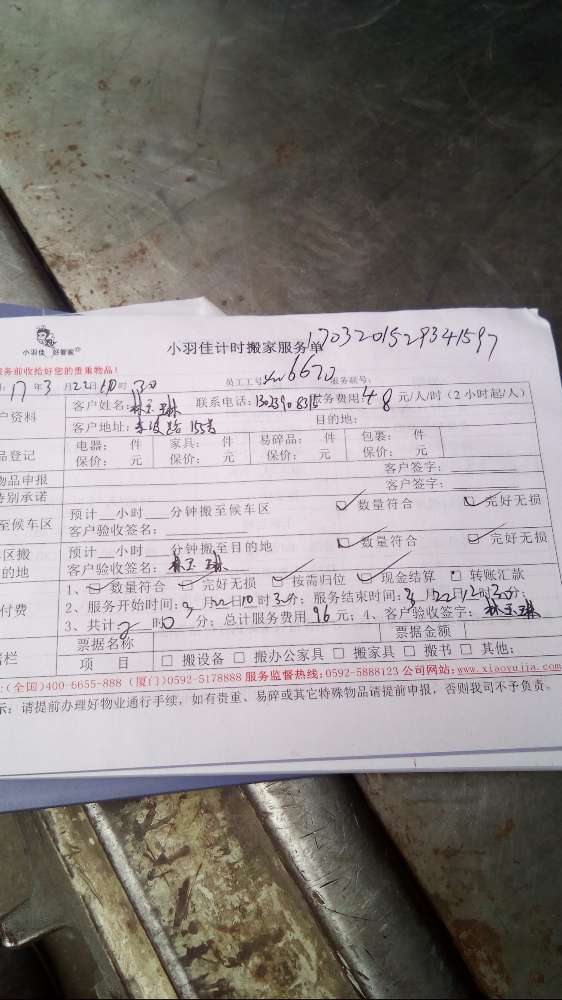 小羽佳 好管家
小羽佳计时搬家服务单 1703201529341597
服务前收拾好您的贵重物品！
17年3月22日10时30 员工工号 6670 服务联号：
户资料 客户姓名： 联系电话：13023908315 务费用48元/人/时（2小时起/人）
客户地址： 路155号 目的地：
品登记 电器： 件 家具： 件 易碎品： 件 包裹： 件
保价： 元 保价： 元 保价： 元 保价： 元
物品申报 客户签字：
特别承诺 客户签字：
至候车区 预计 小时 分钟搬至候车区 ☑数量符合 ☑完好无损
客户验收签名：
区搬 预计 小时 分钟搬至目的地 ☑数量符合 ☑完好无损
的地 客户验收签名：
付费 1、☑数量符合 ☑完好无损 ☑按需归位 ☑现金结算 □转账汇款
2、服务开始时间：3月22日10时30分；服务结束时间：3月22日12时30分；
3、共计2时0分；总计服务费用96元；4、客户验收签字：
票据名称 票据金额
栏 项 目 □搬设备 □搬办公家具 □搬家具 □搬书 □其他：
（全国）400-6655-888（厦门）0592-5178888 服务监督热线：0592-5888123 公司网站：www.xiaoyujia.com
示：请提前办理好物业通行手续，如有贵重、易碎或其它特殊物品请提前申报，否则我司不予负责。